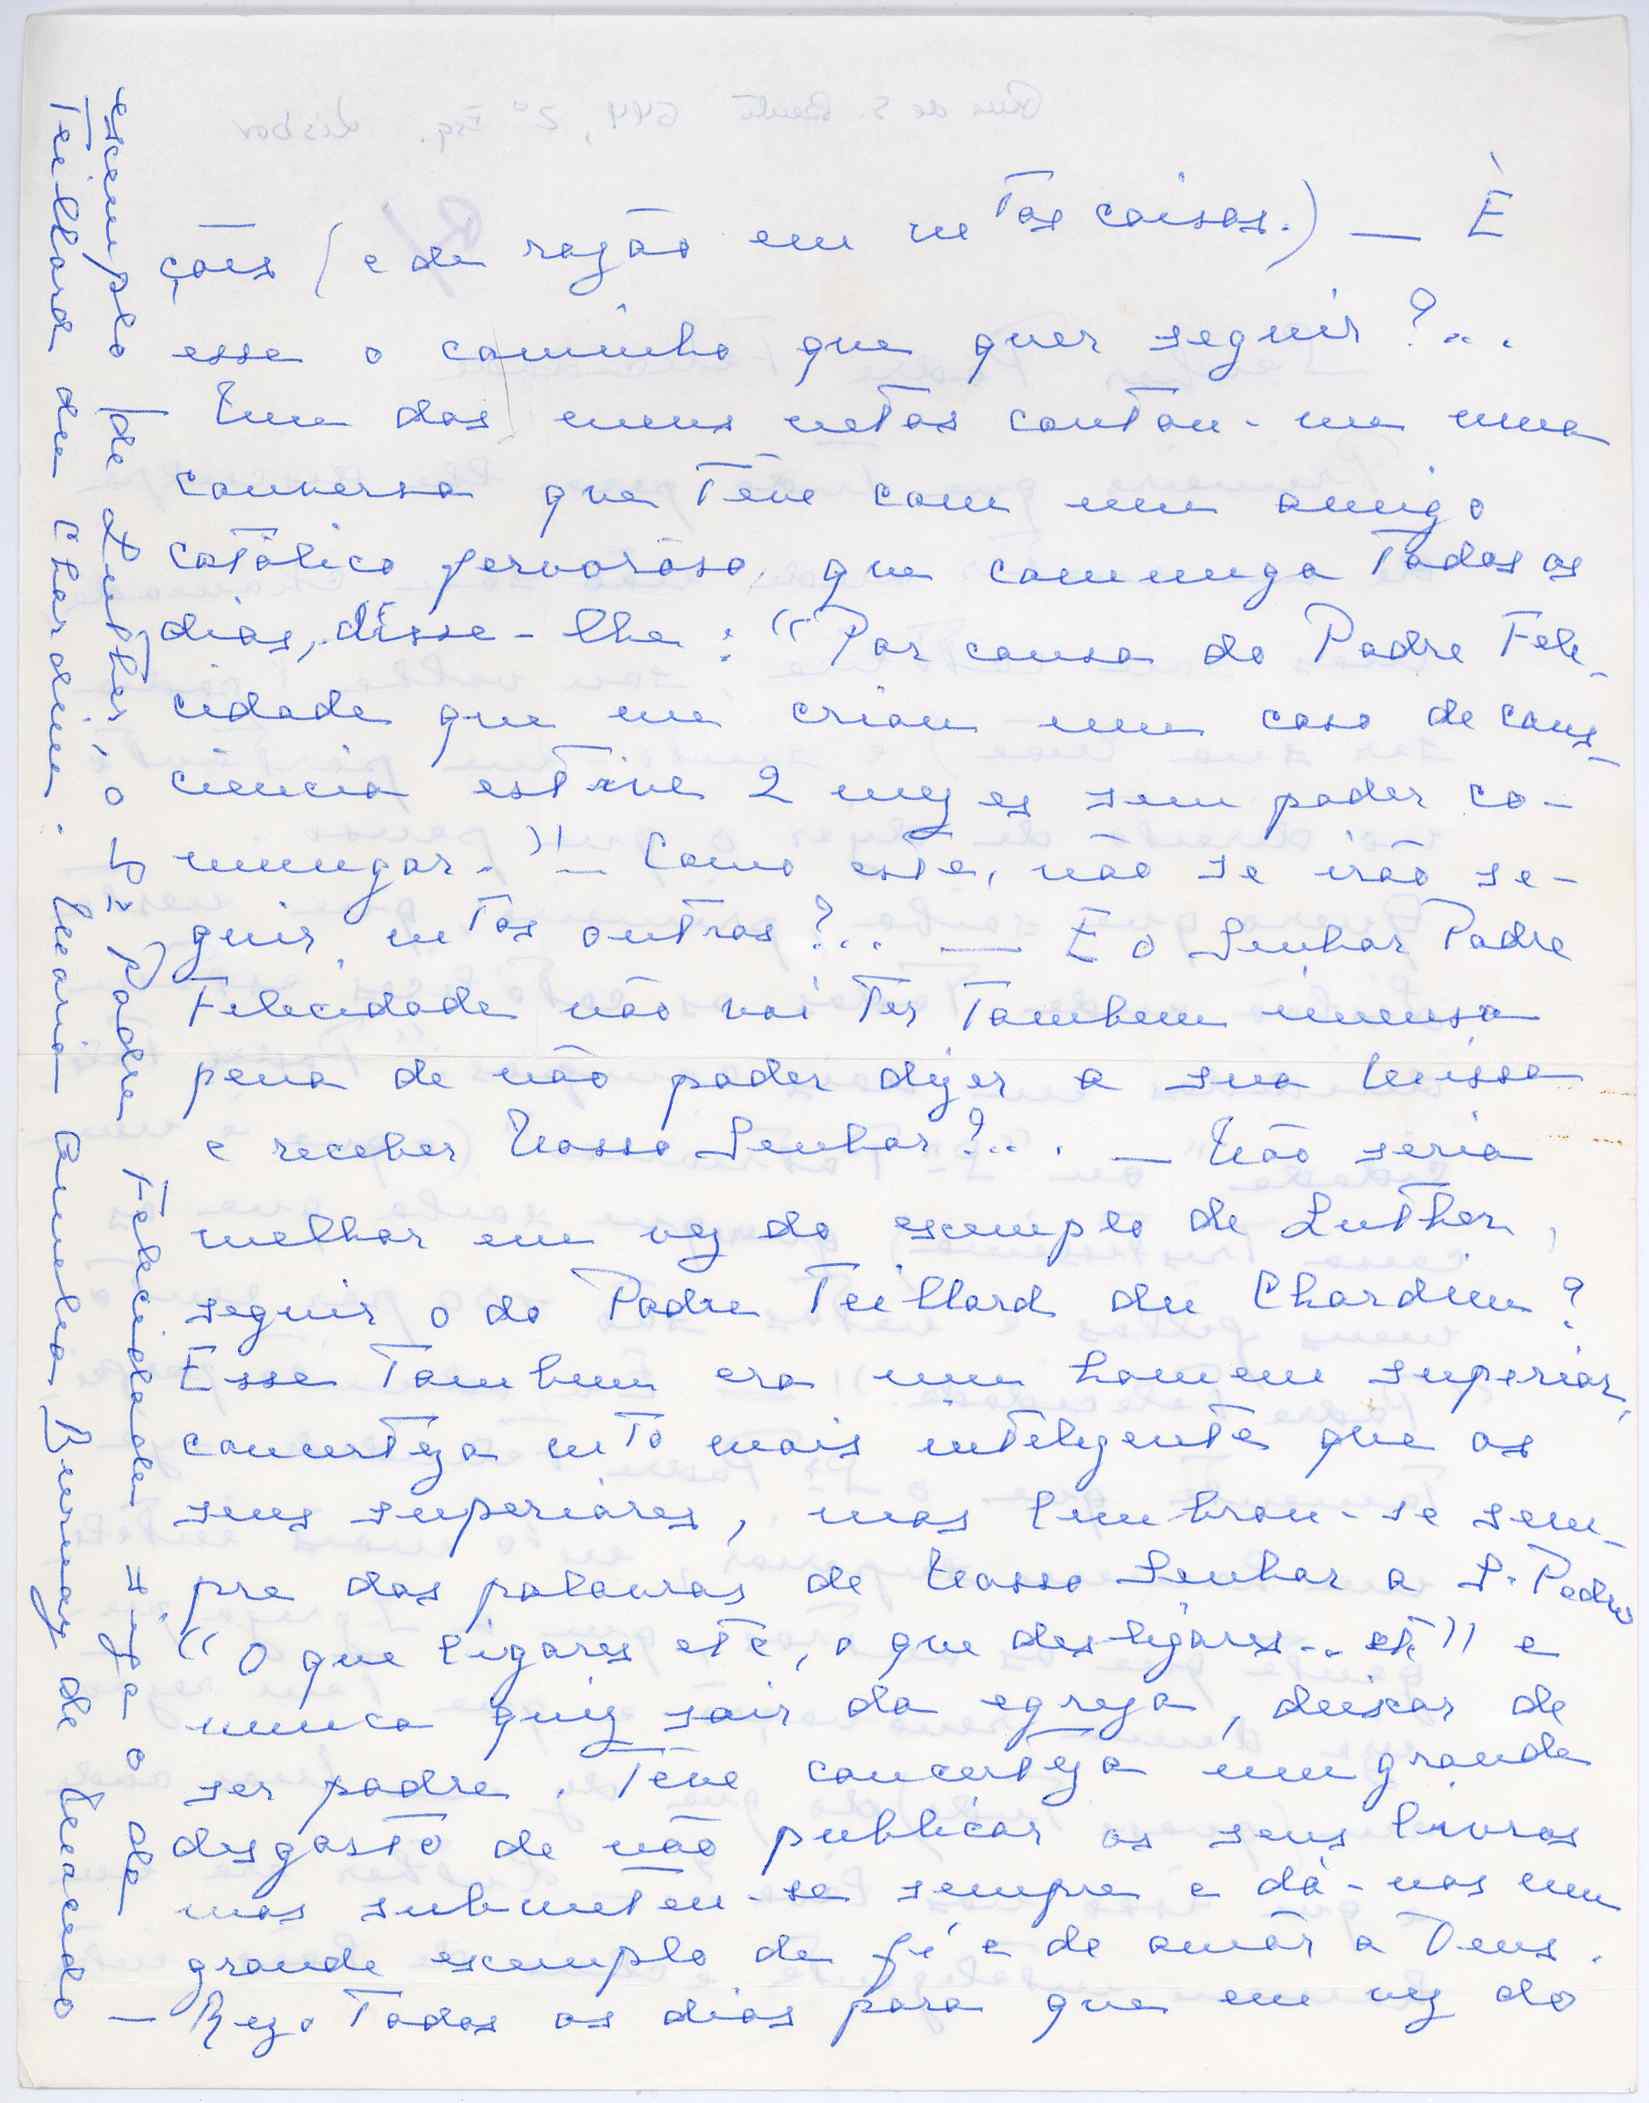 ções (e de razão em mtos coisas.) — È
esse o caminho que quer seguir?...
Um dos meus netos contou-me uma
conversa que têve com um amigo
católico fervorôso, que communga todos os
dias, disse-lhe: "Por causa do Padre Feli-
cidade que me criou um caso de cons-
ciencia estive 2 mezes sem poder co-
mungar." — Como este, não se irão se-
guir mtos outros?... — E o Senhor Padre
Felicidade não vai ter tambem imensa
pena de não poder dizer a sua Missa
e receber Nosso Senhor?... — Não seria
melhor em vez do exemplo de Luther,
seguir o do Padre Teillard du Chardin?
Esse tambem era um homem superior,
concerteza mto mais inteligente que os
seus superiores, mas lembrou-se sem-
pre das palavras de Nosso Senhor a S. Pedro
"O que ligares etc, o que desligares... etc" e
nunca quiz sair da egreja, deixar de
ser padre. Têve concerteza um grande
desgosto de não publicar os seus livros
mas submeteu-se sempre e dá-nos um
grande exemplo de fé e de amôr a Deus.
— Rezo todos os dias para que em vez do
exemplo de Luther, o Sr. Padre Felicidade siga o de
Teillard du Chardin. Maria Amelia Burnay de Macedo